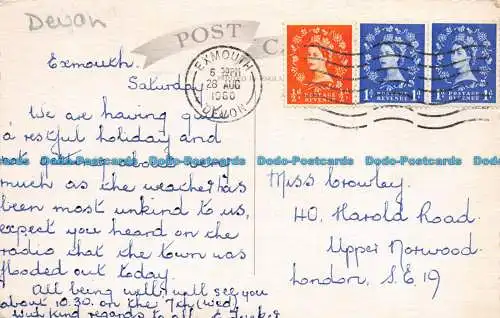 Devon
POST CA
Exmouth.
Saturday
EXMOUTH
6 PM
26 AUG
1960
DEVON
½D POSTAGE REVENUE ½D
1D POSTAGE REVENUE 1D
1D POSTAGE REVENUE 1D
We are having quite
a restful holiday and
not getting about very
much as the weather has
been most unkind to us,
expect you heard on the
radio that the town was
flooded out today.
All being well will see you
about 10.30 on the 7th (Wed)
with kind regards to all,
Miss Crowley.
40, Harold Road.
Upper Norwood.
London, S.E.19
Dodo-Postcards Dodo-Postcards Dodo-Postcards Dodo-Postcards